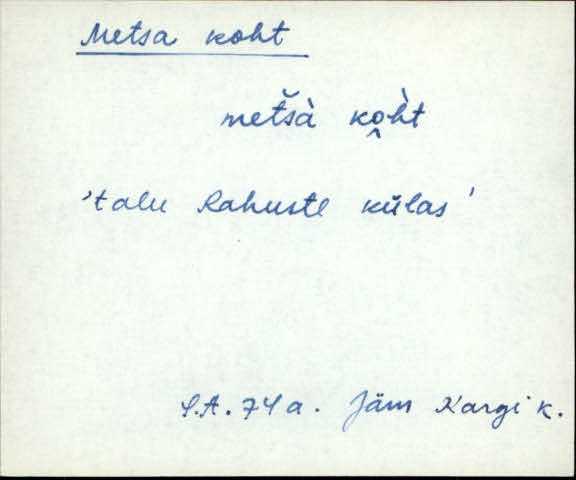 Metsa koht
metšà ko̭h̀t
'talu Rahuste külas'
S.A. 74 a. Jäm Kargi k.